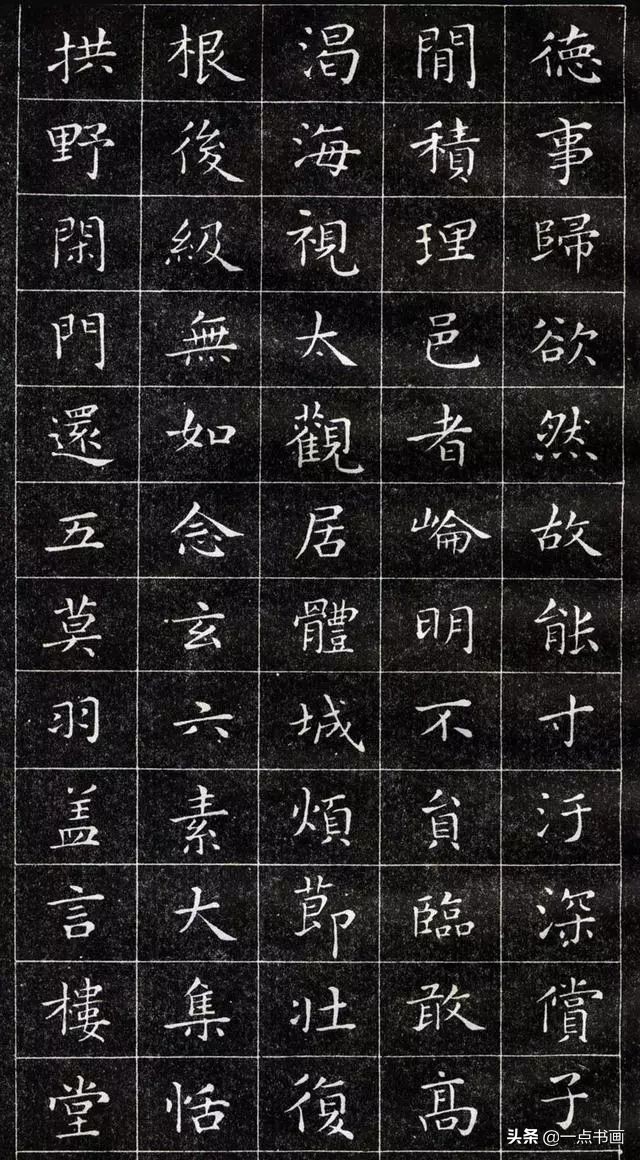 徳事歸欲然故能寸汙深償子
閒積理邑者崘明不貟臨敢髙
渴海視太觀居體城煩莭壯復
根後級無如念玄六素大集恬
拱野閑門還五莫羽盖言樓堂
头条 @一点书画